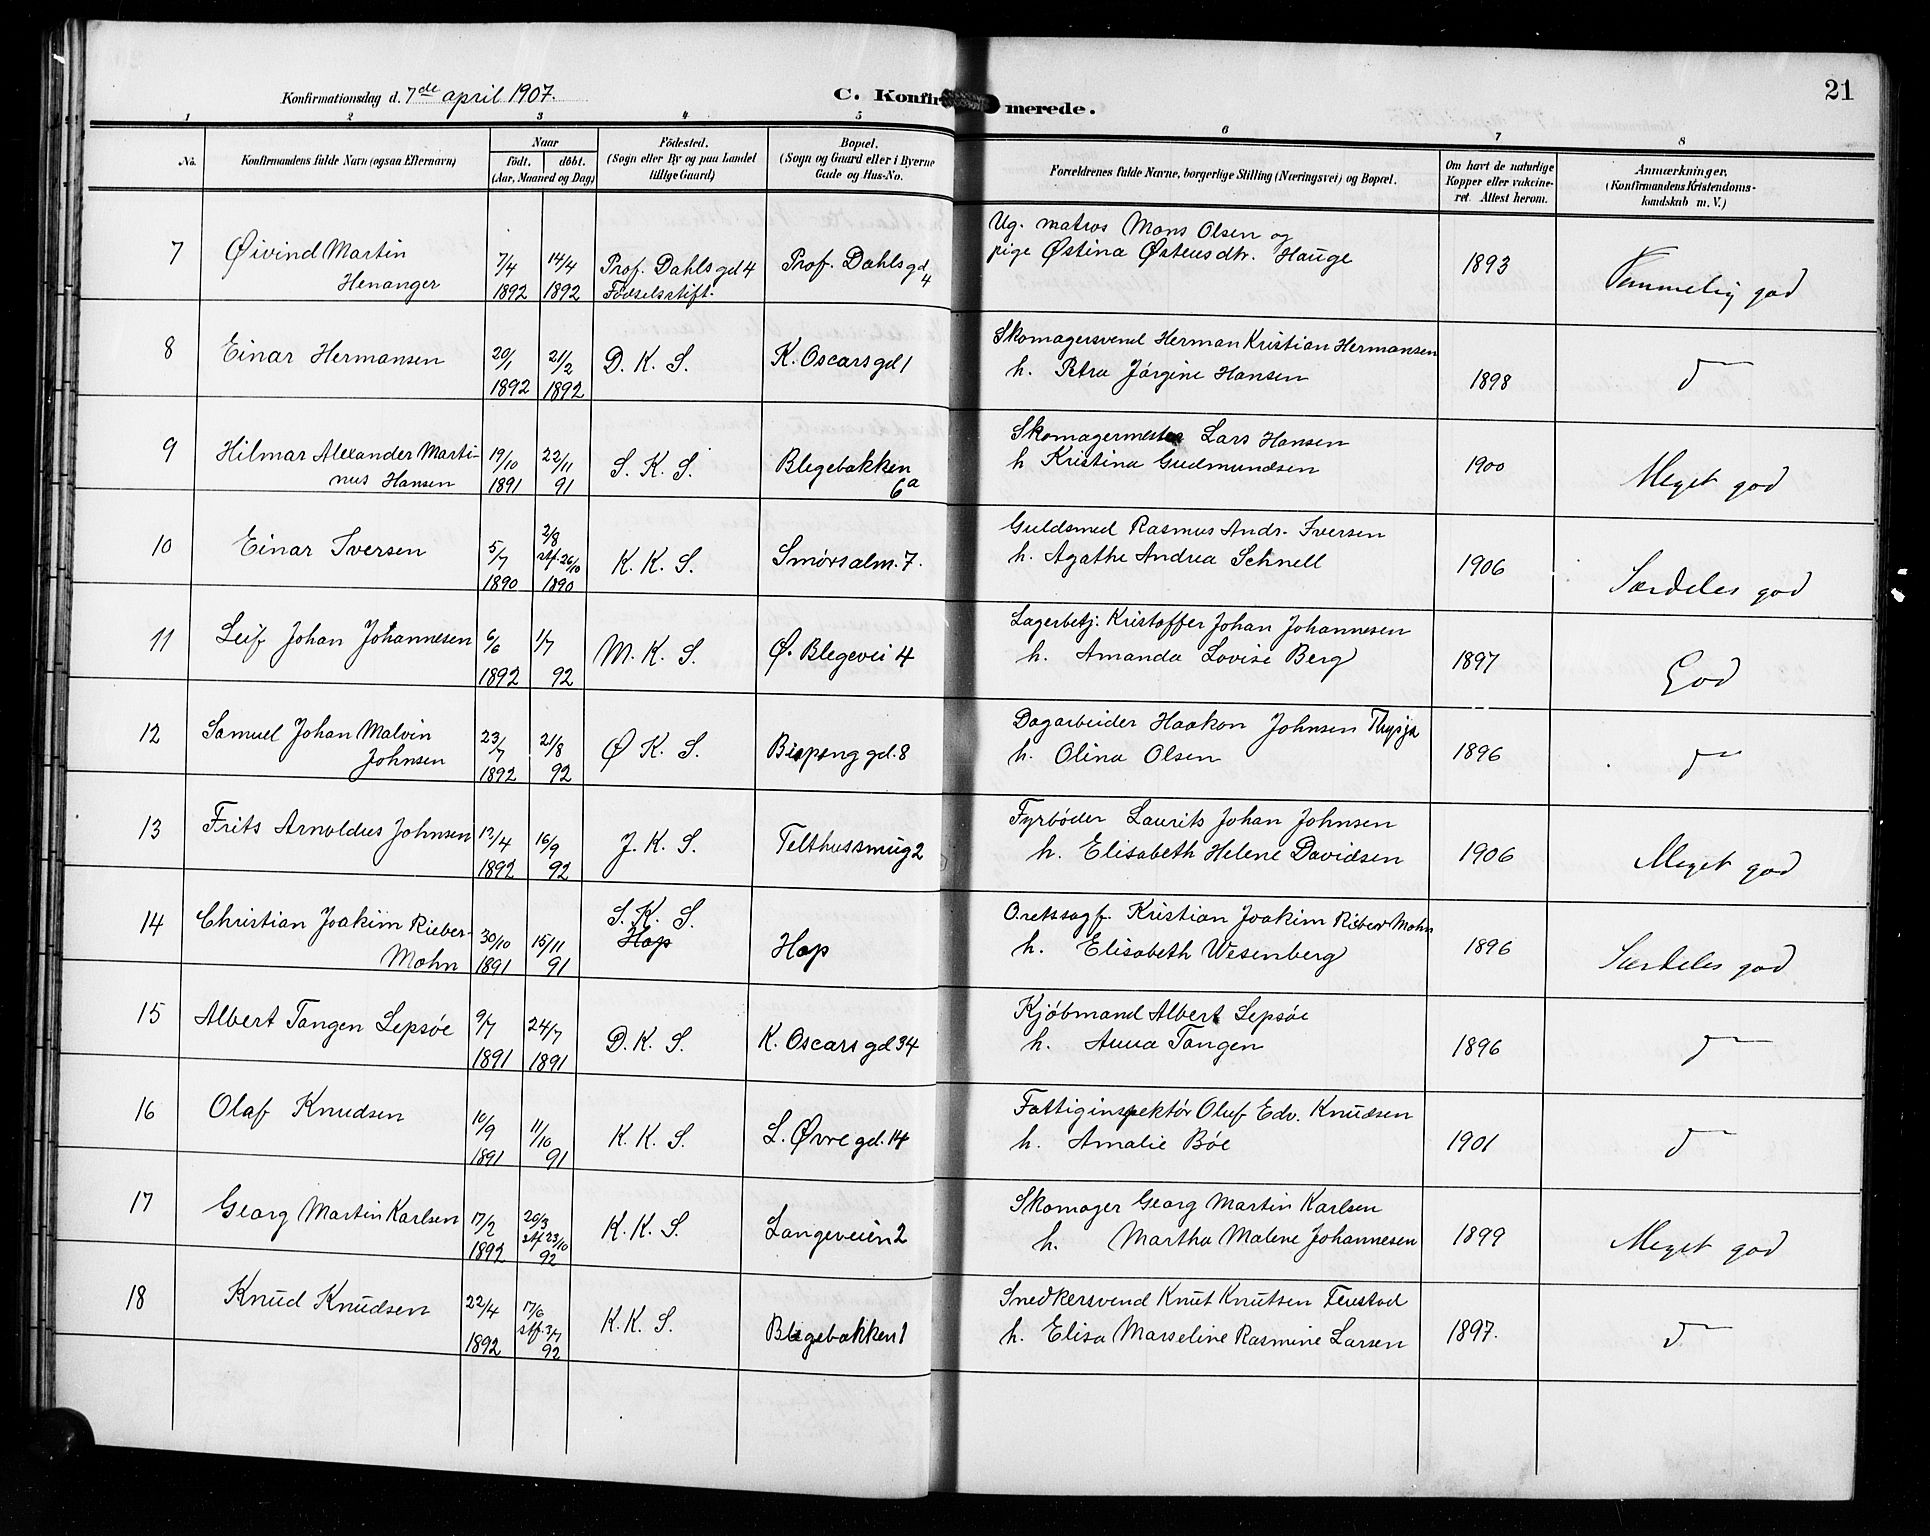 Konfirmationsdag d. 7de april 1907.
C. Konfirmerede.
21
1 2 3 4 5 6 7 8
No.
Konfirmandens fulde Navn (ogsaa Efternavn)
Naar
født. døbt.
(Aar, Maaned og Dag)
Fødested.
(Sogn eller By og paa Landet
tillige Gaard)
Bopæl.
(Sogn og Gaard eller i Byerne
Gade og Hus-No.
Forældrenes fulde Navne, borgerlige Stilling (Næringsvei) og Bopæl.
Om havt de naturlige
Kopper eller vakcine-
ret. Attest herom.
Anmærkninger.
(Konfirmandens Kristendoms-
kundskab m. V.)
7 Øivind Martin
Henanger
7/4
1892
14/4
1892
Prof. Dahls gd 4
Fødselsstift.
Prof. Dahls gd
4
Ug. matros Mons Olsen og
pige Østina Østensdtr. Hauge
1893
Temmelig god
8 Einar Hermansen
20/1
1892
21/2
1892
D. K. S.
K. Oscars gd 1
Skomagersvend Herman Kristian Hermansen
h. Petra Jørgine Hansen
1898
do
9 Hilmar Alexander Marti-
nus Hansen
19/10
1891
22/11
91
S. K. S.
Blegebakken
6a
Skomagermester Lars Hansen
h Kristina Gudmundsen
1900
Meget god
10 Einar Iversen
5/7
1890
2/8
stf. 26/10
1890
K. K. S.
Smørsalm. 7.
Guldsmed Rasmus Andr. Iversen
h. Agathe Andrea Schnell
1906
Særdeles god
11 Leif Johan Johannesen
6/6
1892
1/7
92
M. K. S.
Ø. Blegevei 4
Lagerbetj. Kristoffer Johan Johannesen
h. Amanda Lovise Berg
1897
God
12 Samuel Johan Malvin
Johnsen
23/7
1892
21/8
92
Ø K. S.
Bispeng gd. 8
Dagarbeider Haakon Johnsen
h. Olina Olsen
1896
do
13 Frits Arnoldus Johnsen
12/4
1892
16/9
92
J. K. S.
Telthussmug 2
Fyrbøder Laurits Johan Johnsen
h. Elisabeth Helene Davidsen
1906
Meget god
14 Christian Joakim Rieber-
Mohn
30/10
1891
15/11
91
S. K. S.
Hop
Hop
O.retssagf. Kristian Joakim Rieber Mohn
h. Elisabeth Wesenberg
1896
Særdeles god
15 Albert Tangen Lepsøe
9/7
1891
24/7
1891
D. K. S.
K. Oscars gd 34
Kjøbmand Albert Lepsøe
h. Anna Tangen
1896
do
16 Olaf Knudsen
10/9
1891
11/10
91
K. K. S.
L. Øvre gd. 14
Fattiginspektør Oluf Edv. Knudsen
h. Amalie Bøe
1901
do
17 Georg Martin Karlsen
17/2
1892
20/3
stf 23/10
92
K. K. S.
Langeveien 2
Skomager Georg Martin Karlsen
h. Martha Malene Johannesen
1899
Meget god
18 Knud Knudsen
22/4
1892
17/6
stf. 3/7
92
K. K. S.
Blegebakken 1
Snedkersvend Knut Knutsen
h. Elisa Marseline Rasmine Larsen
1897.
do